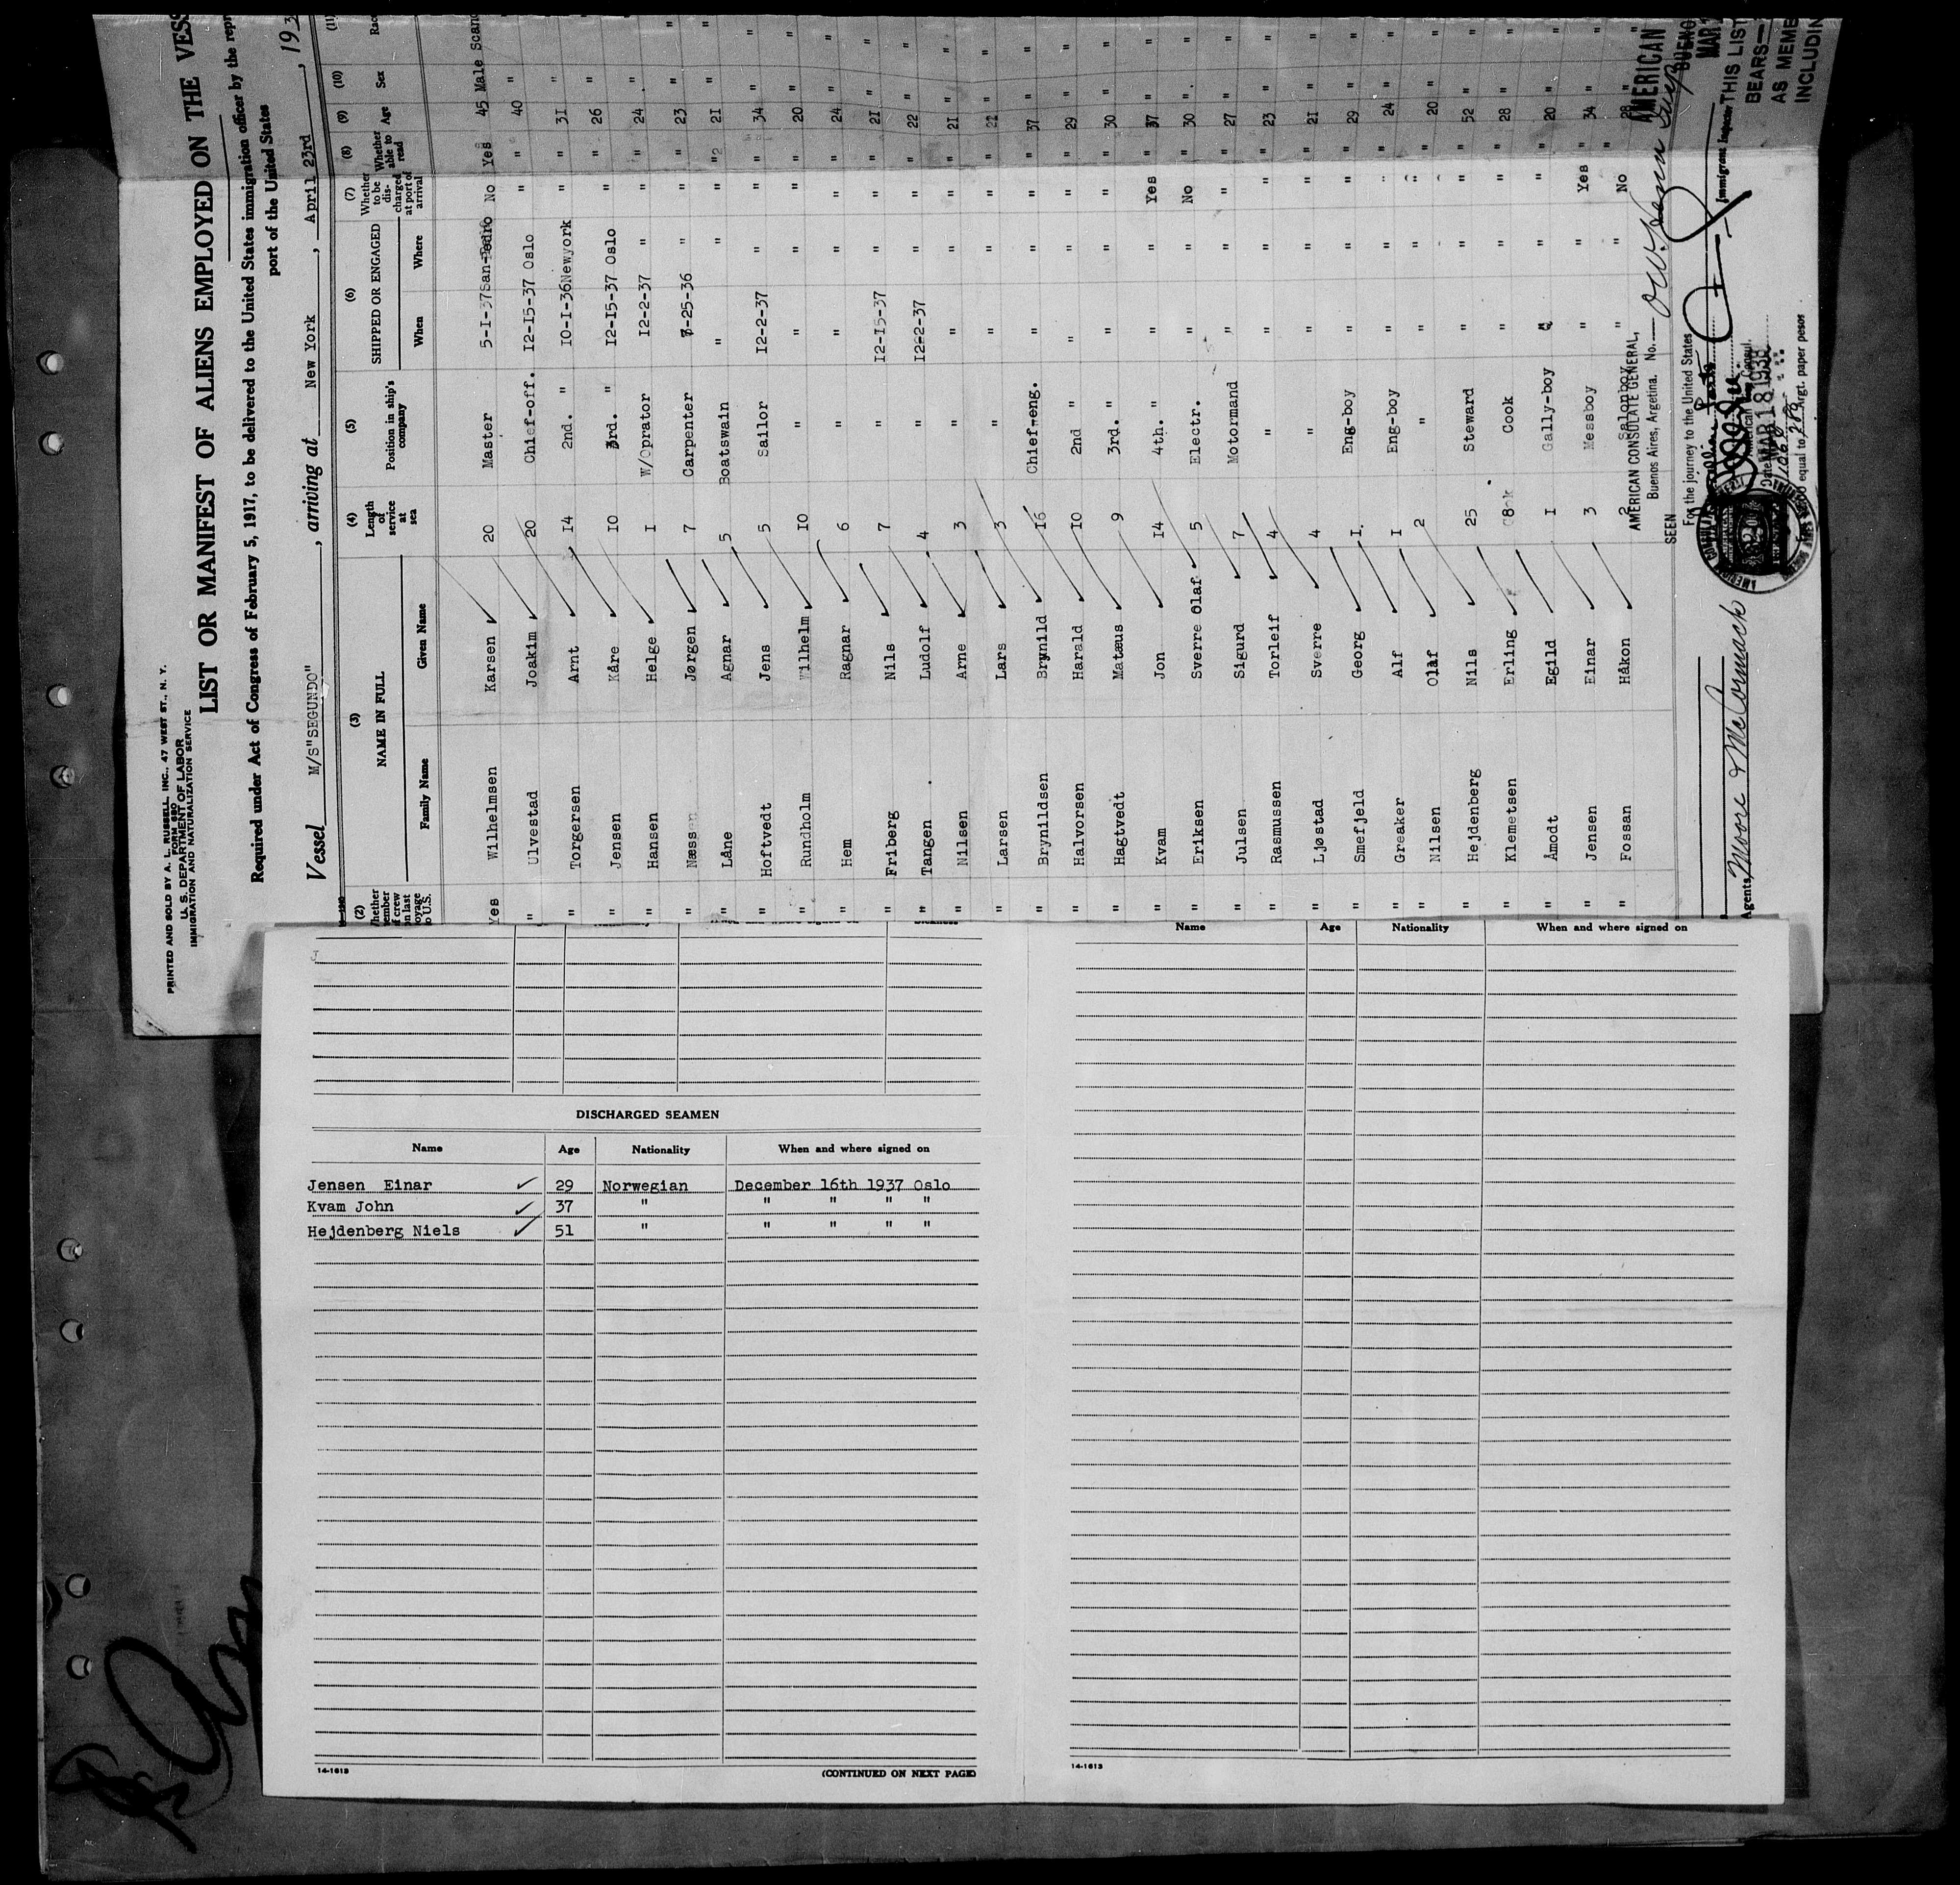 PRINTED AND SOLD BY A. L. RUSSELL, INC., 47 WEST ST., N. Y.
FORM 680
U. S. DEPARTMENT OF LABOR
IMMIGRATION AND NATURALIZATION SERVICE
LIST OR MANIFEST OF ALIENS EMPLOYED ON THE VESS
Required under Act of Congress of February 5, 1917, to be delivered to the United States immigration officer by the repr
port of the United States
Vessel M/S"SEGUNDO" , arriving at New York , April 23rd , 193
(2) (3) (4) (5) (6) (7) (8) (9) (10) (11)
NAME IN FULL Length of service at sea Position in ship's company SHIPPED OR ENGAGED Whether to be discharged at port of arrival Whether able to read Age Sex Race
Family Name Given Name When Where
Yes Wilhelmsen Karsen 20 Master 5-1-37 San-Pedro No Yes 45 Male Scand
" Ulvestad Joakim 20 Chief-off. 12-15-37 Oslo " " 40 "
" Torgersen Arnt 14 2nd. " 10-1-36 Newyork " " 31 "
" Jensen Kåre 10 3rd. " 12-15-37 Oslo " " 26 "
" Hansen Helge 1 W/Oprator 12-2-37 " " " 24 "
" Næssen Jørgen 7 Carpenter 8-25-36 " " " 23 " "
" Låne Agnar 5 Boatswain " " " " 21 " "
" Hoftvedt Jens 5 Sailor 12-2-37 " " " 34 " "
" Rundholm Wilhelm 10 " " " " " 20 " "
" Hem Ragnar 6 " " " " " 24 " "
" Friberg Nils 7 " 12-15-37 " " " 21 " "
" Tangen Ludolf 4 " 12-2-37 " " " 22 " "
" Nilsen Arne 3 " " " " " 21 " "
Larsen Lars 3 " " " " " 22 " "
" Brynildsen Brynild 16 Chief-eng. " " " " 37 " "
" Halvorsen Harald 10 2nd " " " " " 29 " "
" Hagtvedt Matæus 9 3rd. " " " " " 30 " "
" Kvam Jon 14 4th. " " " Yes " 37 " "
" Eriksen Sverre Olaf 5 Electr. " " No " 30 " "
" Julsen Sigurd 7 Motormand " " " " 27 " "
" Rasmussen Torleif 4 " " " " " 23 " "
" Ljøstad Sverre 4 " " " " " 21 " "
" Smefjeld Georg 1. Eng-boy " " " " 29 " "
" Greaker Alf 1 Eng-boy " " " " 24 " "
" Nilsen Olaf 2 " " " " " 20 " "
" Hejdenberg Nils 25 Steward " " " " 52 " "
" Klemetsen Erling 8 Cook " " " " 28 " "
" Åmodt Egild 1 Gally-boy " " " " 20 " "
" Jensen Einar 3 Messboy " " Yes " 34 " "
" Fossan Håkon 2 Salonboy " " No " 28 " "
AMERICAN CONSULATE GENERAL,
Buenos Aires, Argetina. No.
SEEN
For the journey to the United States
American Consul.
Date MAR 18 1938
equal to Argt. paper pesos
Agents Moore McCormack
Immigrant Inspector
AMERICAN
BUENO
MAR
THIS LIST
BEARS—
AS MEMB
INCLUDIN
Name Age Nationality When and where signed on
DISCHARGED SEAMEN
Name Age Nationality When and where signed on
Jensen Einar 29 Norwegian December 16th 1937 Oslo
Kvam John 37 " " " " "
Hejdenberg Niels 51 " " " " "
14-1613
(CONTINUED ON NEXT PAGE)
14-1613